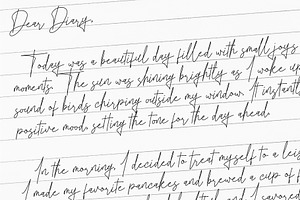 Dear Diary,
Today was a beautiful day filled with small joys
moments. The sun was shining brightly as I woke up
sound of birds chirping outside my window. It instantly
positive mood, setting the tone for the day ahead.
In the morning, I decided to treat myself to a leis
I made my favorite pancakes and brewed a cup of
and I savored